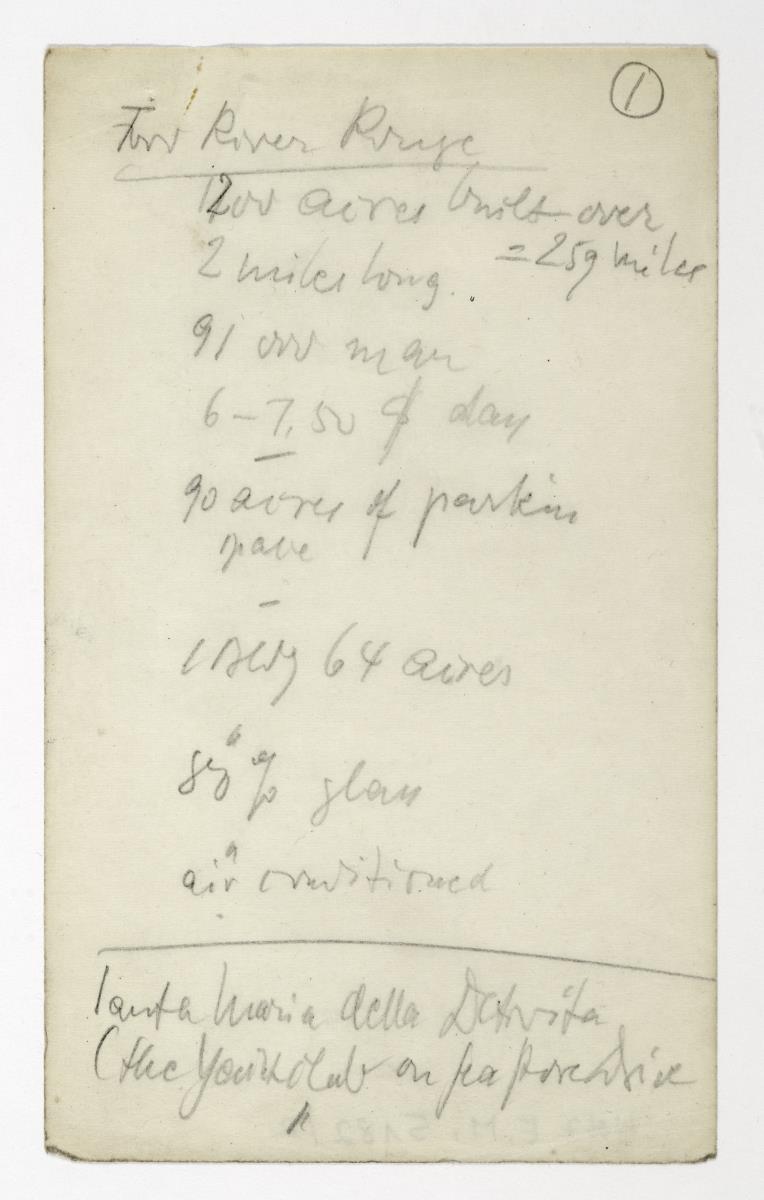 1
Ford River Rouge
1200 acres built over
= 259 miles
2 miles long.
91 000 man
6 – 7.50 $ day
90 acres of parkin
space
1 Bldg 64 acres
80 % glass
air conditioned
Santa Maria della Detroita
(the Yacht club on